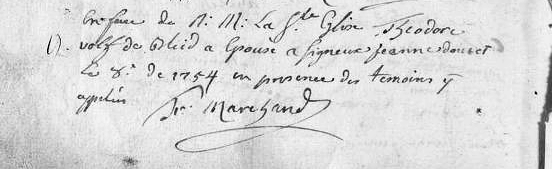 de N: M: La Ste Eglise Theodore
volf de a Epousé a Signeux jeanne douret
Le 8.e de 1754 en presence des temoins y
appellés
Marchand